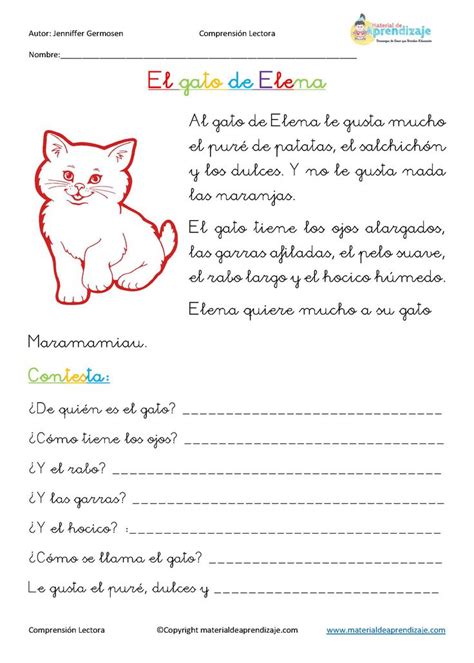 Autor: Jenniffer Germosen
Comprensión Lectora
material de
Aprendizaje
Nombre:____________________
El gato de Elena
Al gato de Elena le gusta mucho
el puré de patatas, el salchichón
y los dulces. Y no le gusta nada
las naranjas.
El gato tiene los ojos alargados,
las garras afiladas, el pelo suave,
el rabo largo y el hocico húmedo.
Elena quiere mucho a su gato
Maramamiau.
Contesta:
¿De quién es el gato? ____________________
¿Cómo tiene los ojos? ____________________
¿Y el rabo? ____________________
¿Y las garras? ____________________
¿Y el hocico? :____________________
¿Cómo se llama el gato? ____________________
Le gusta el puré, dulces y ____________________
Comprensión Lectora
©Copyright materialdeaprendizaje.com
www.materialdeaprendizaje.com